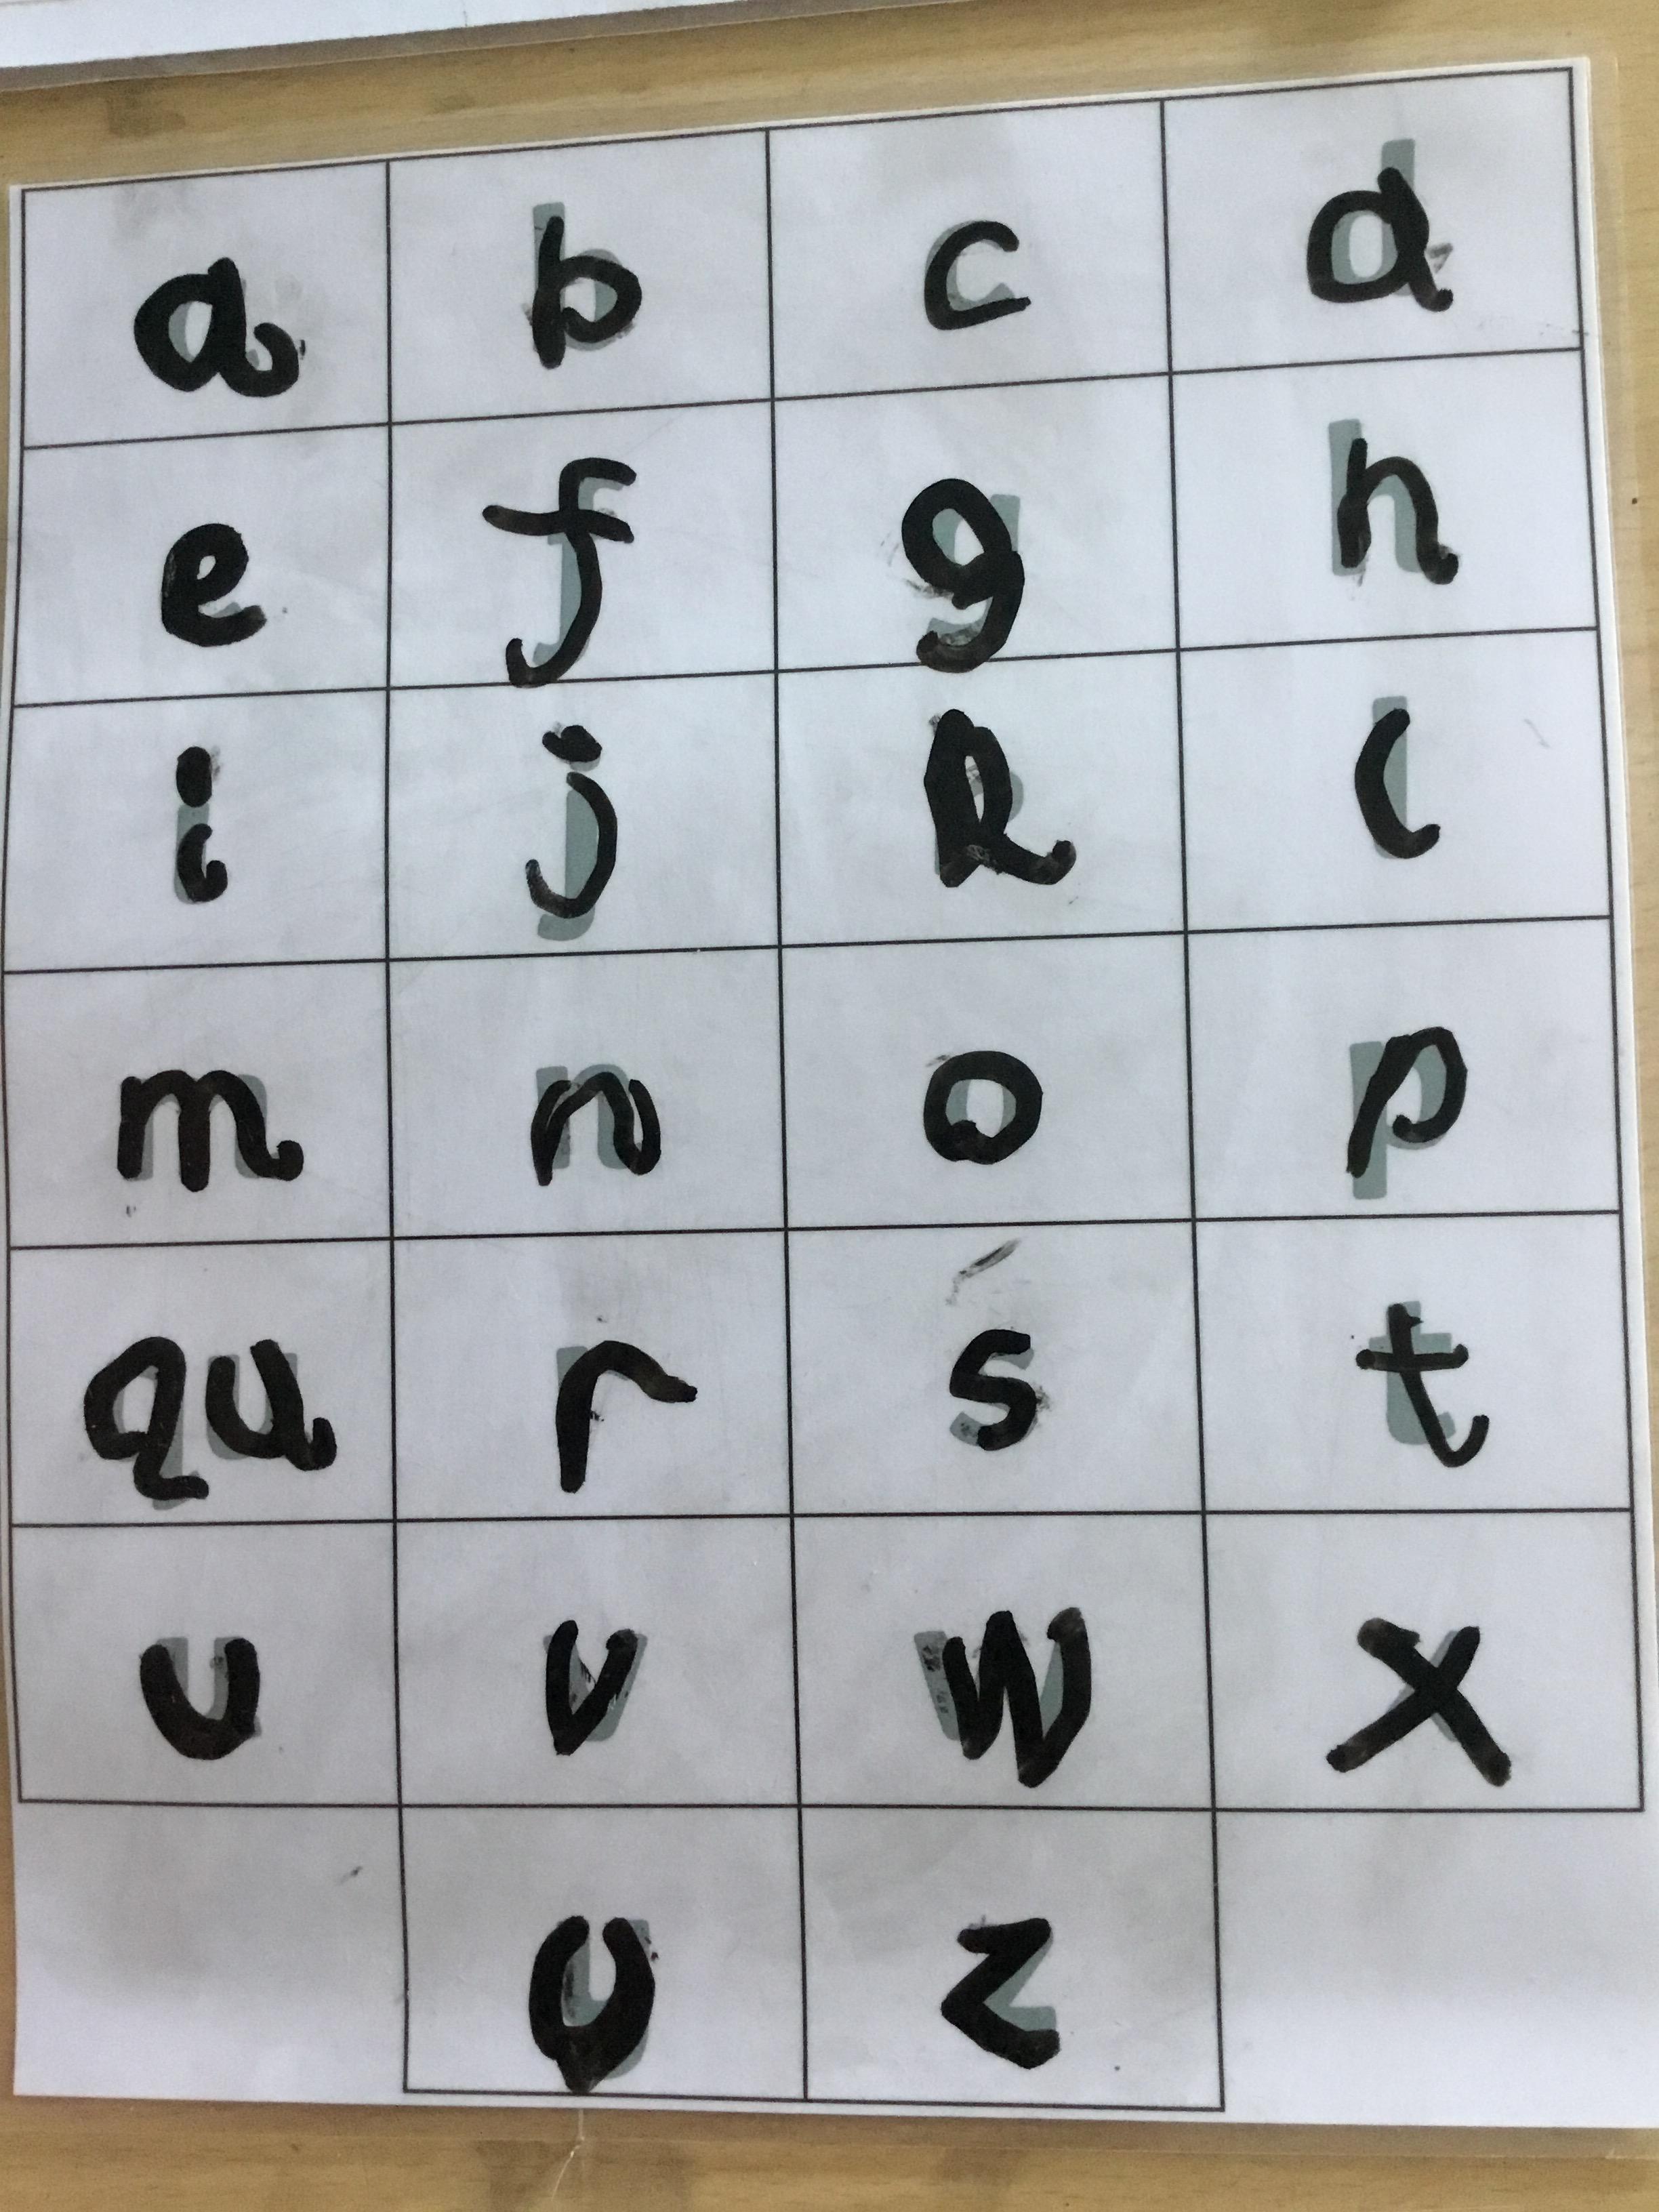 a b c d
e f g h
i j k l
m n o p
qu r s t
u v w x
y z